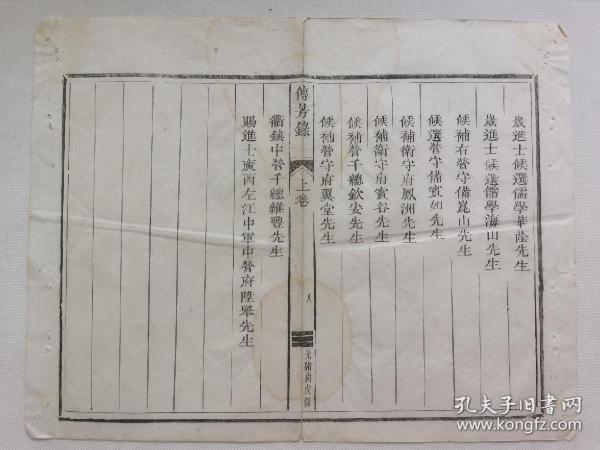 歲進士候選儒學華蔭先生
歲進士候選儒學海山先生
候補右營守備崑山先生
候選營守備賓如先生
候補衛守府鳳洲先生
候補衛守府賓谷先生
候補營千總欽安先生
候補營守府翼堂先生
傳芳錄
上卷
八
光緒丙戌錄
衢鎮中營千總維豐先生
賜進士廣西左江中軍中營府陞舉先生
孔夫子旧書网
www.kongfz.com